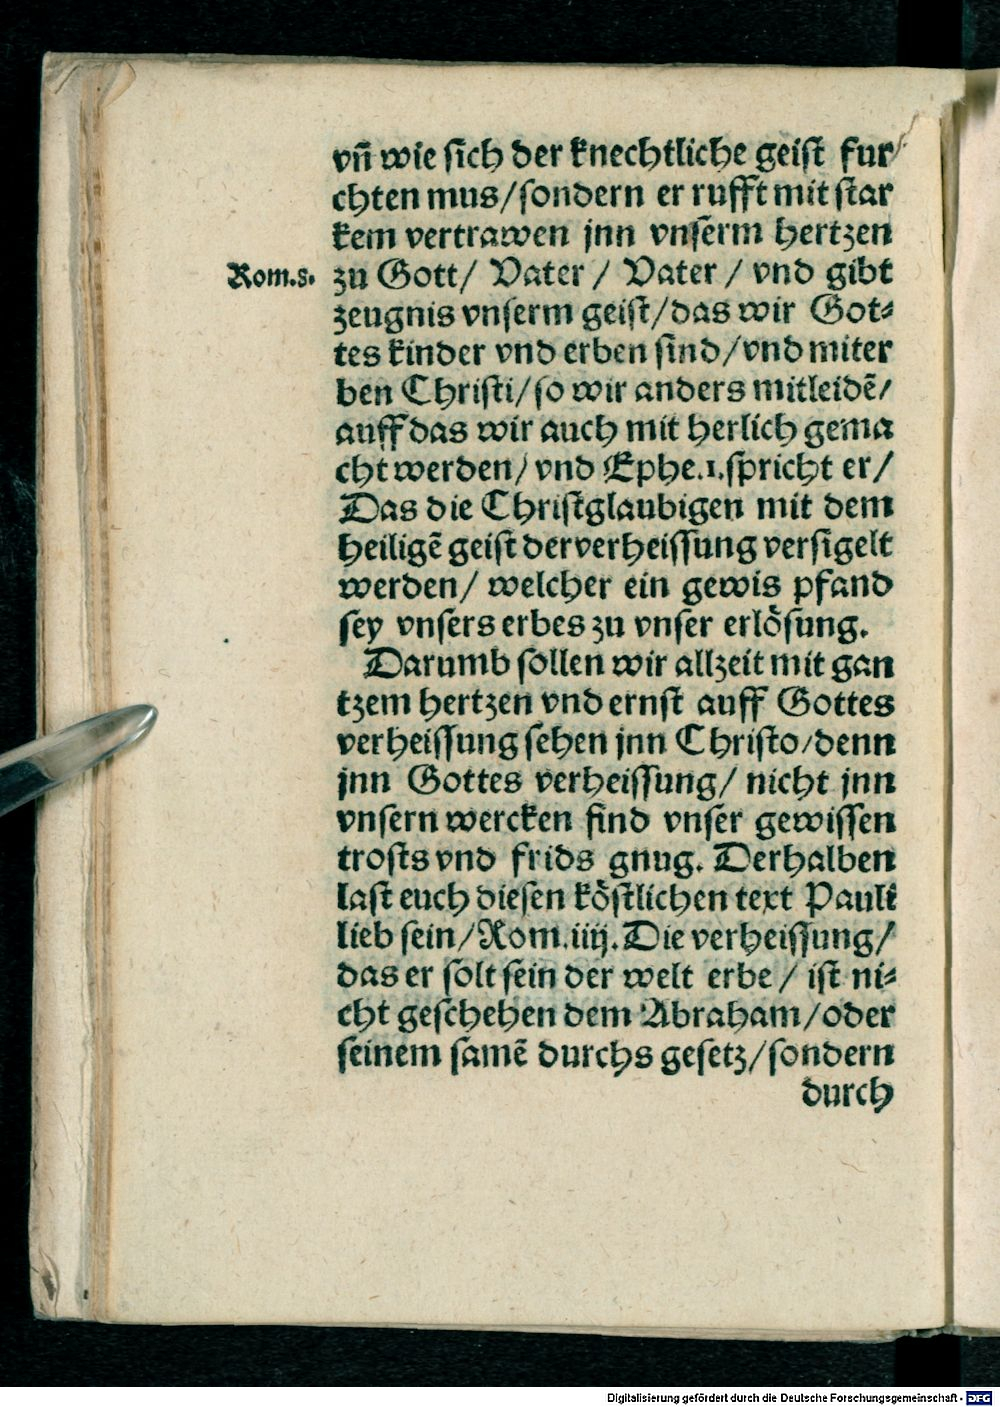 vñ wie sich der knechtliche geist fur
chten mus/sondern er rufft mit star
kem vertrawen jnn vnserm hertzen
Rom.8. zu Gott/ Vater / Vater / vnd gibt
zeugnis vnserm geist/das wir Got⸗
tes kinder vnd erben sind/vnd miter
ben Christi/so wir anders mitleidẽ/
auff das wir auch mit herlich gema
cht werden/ vnd Ephe.1.spricht er/
Das die Christglaubigen mit dem
heiligẽ geist der verheissung versigelt
werden/ welcher ein gewis pfand
sey vnsers erbes zu vnser erlösung.
Darumb sollen wir allzeit mit gan
tzem hertzen vnd ernst auff Gottes
verheissung sehen jnn Christo/denn
jnn Gottes verheissung/ nicht jnn
vnsern wercken find vnser gewissen
trosts vnd frids gnug. Derhalben
last euch diesen köstlichen text Pauli
lieb sein/Rom.iiij.Die verheissung/
das er solt sein der welt erbe / ist ni⸗
cht geschehen dem Abraham/oder
seinem samẽ durchs gesetz/sondern
durch
Digitalisierung gefördert durch die Deutsche Forschungsgemeinschaft - DFG